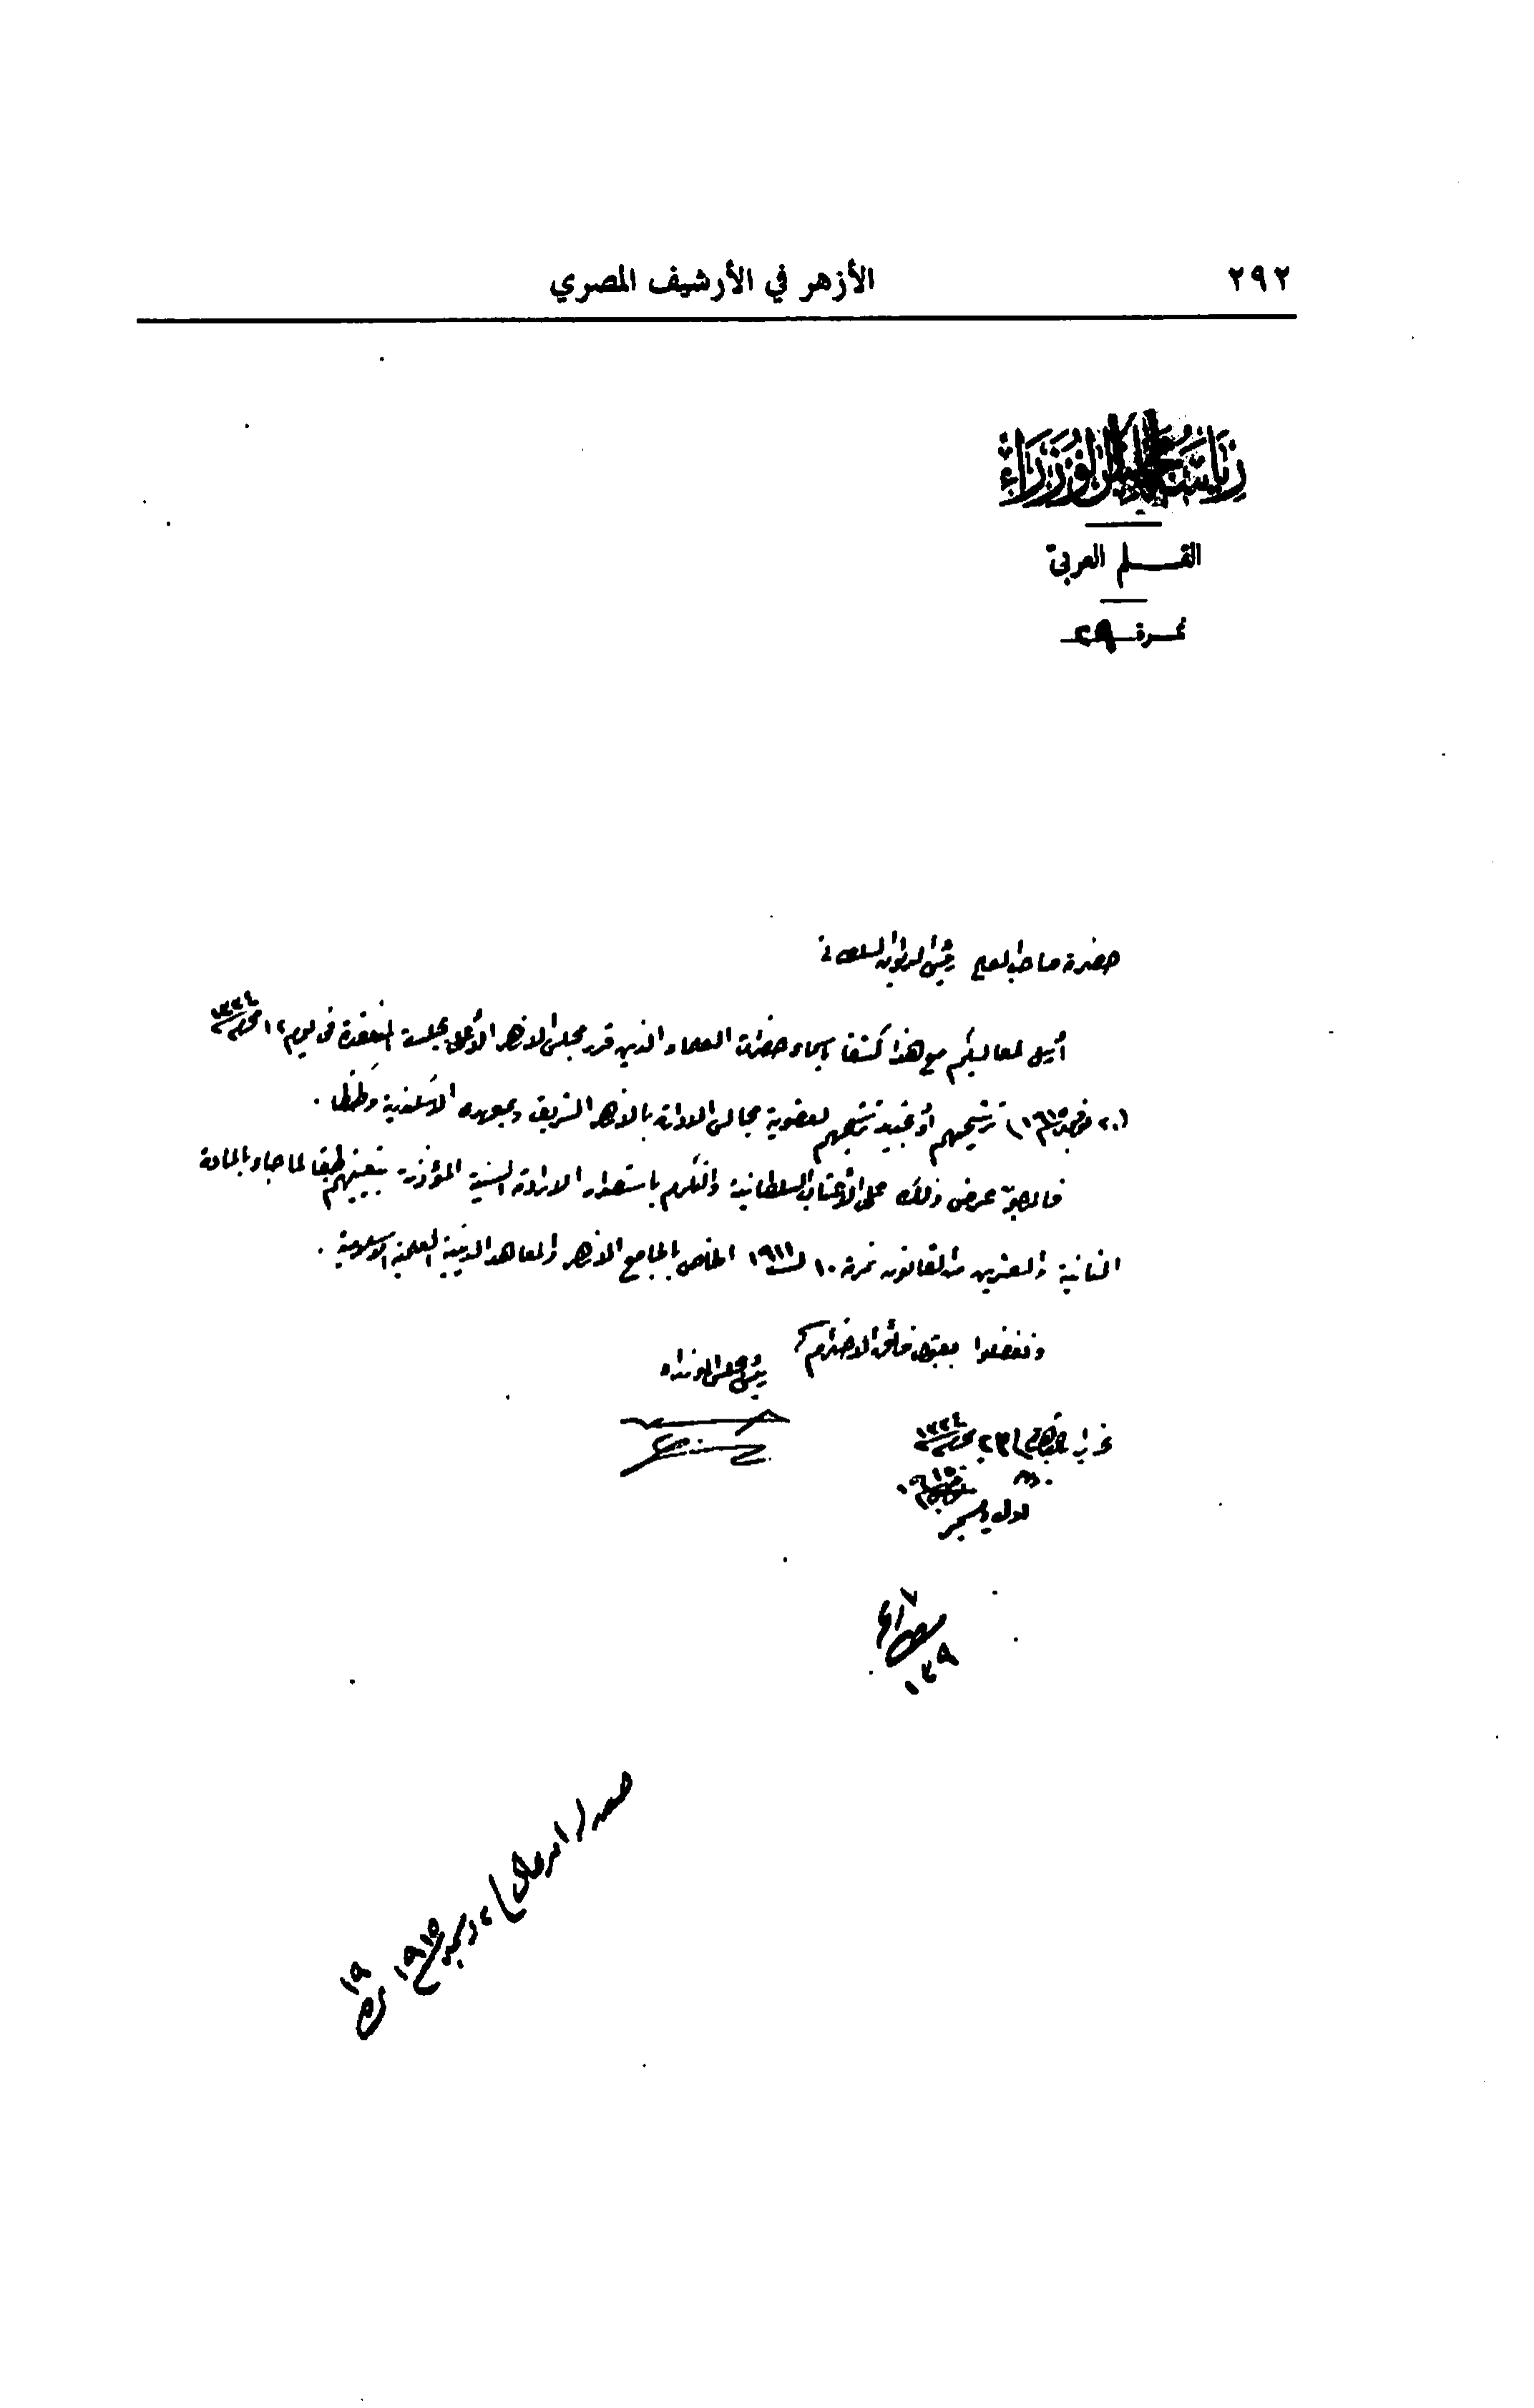 ٢٩٢
الأزهر في الأرشيف المصري
رئاسة مجلس الوزراء
القلم العربى
نمرة ٢٩
حضرة صاحب المعالى رئيس الديوان السلطانى
أرسل لمعاليكم مع هذا كشفا بأسماء حضرات العلماء الذين قرر مجلس الازهر الأعلى بجلسته المنعقدة فى يوم ١٢ محرم سنة ١٣٣٤
(٢٠ نوفمبر سنة ١٩١٥) ترشيحهم أو تجديد ترشيحهم لعضوية مجالس الادارة بالازهر الشريف وبمعهدى الاسكندرية وطنطا .
فالمرجو عرض ذلك على الأعتاب السلطانية والتكرم باستصدار الارادة السنية المؤذنة بتعيينهم طبقا لما جاء بالمادة
الثانية والعشرين من القانون نمرة ١٠ لسنة ١٩١١ الخاص بالجامع الازهر والمعاهد الدينية العلمية الاسلامية .
وتفضلوا بقبول فائق الاحترام
رئيس مجلس الوزراء
٢٣ محرم سنة ١٣٣٤
سنة ١٩١٥
ديسمبر سنة ١٩١٥
١٩